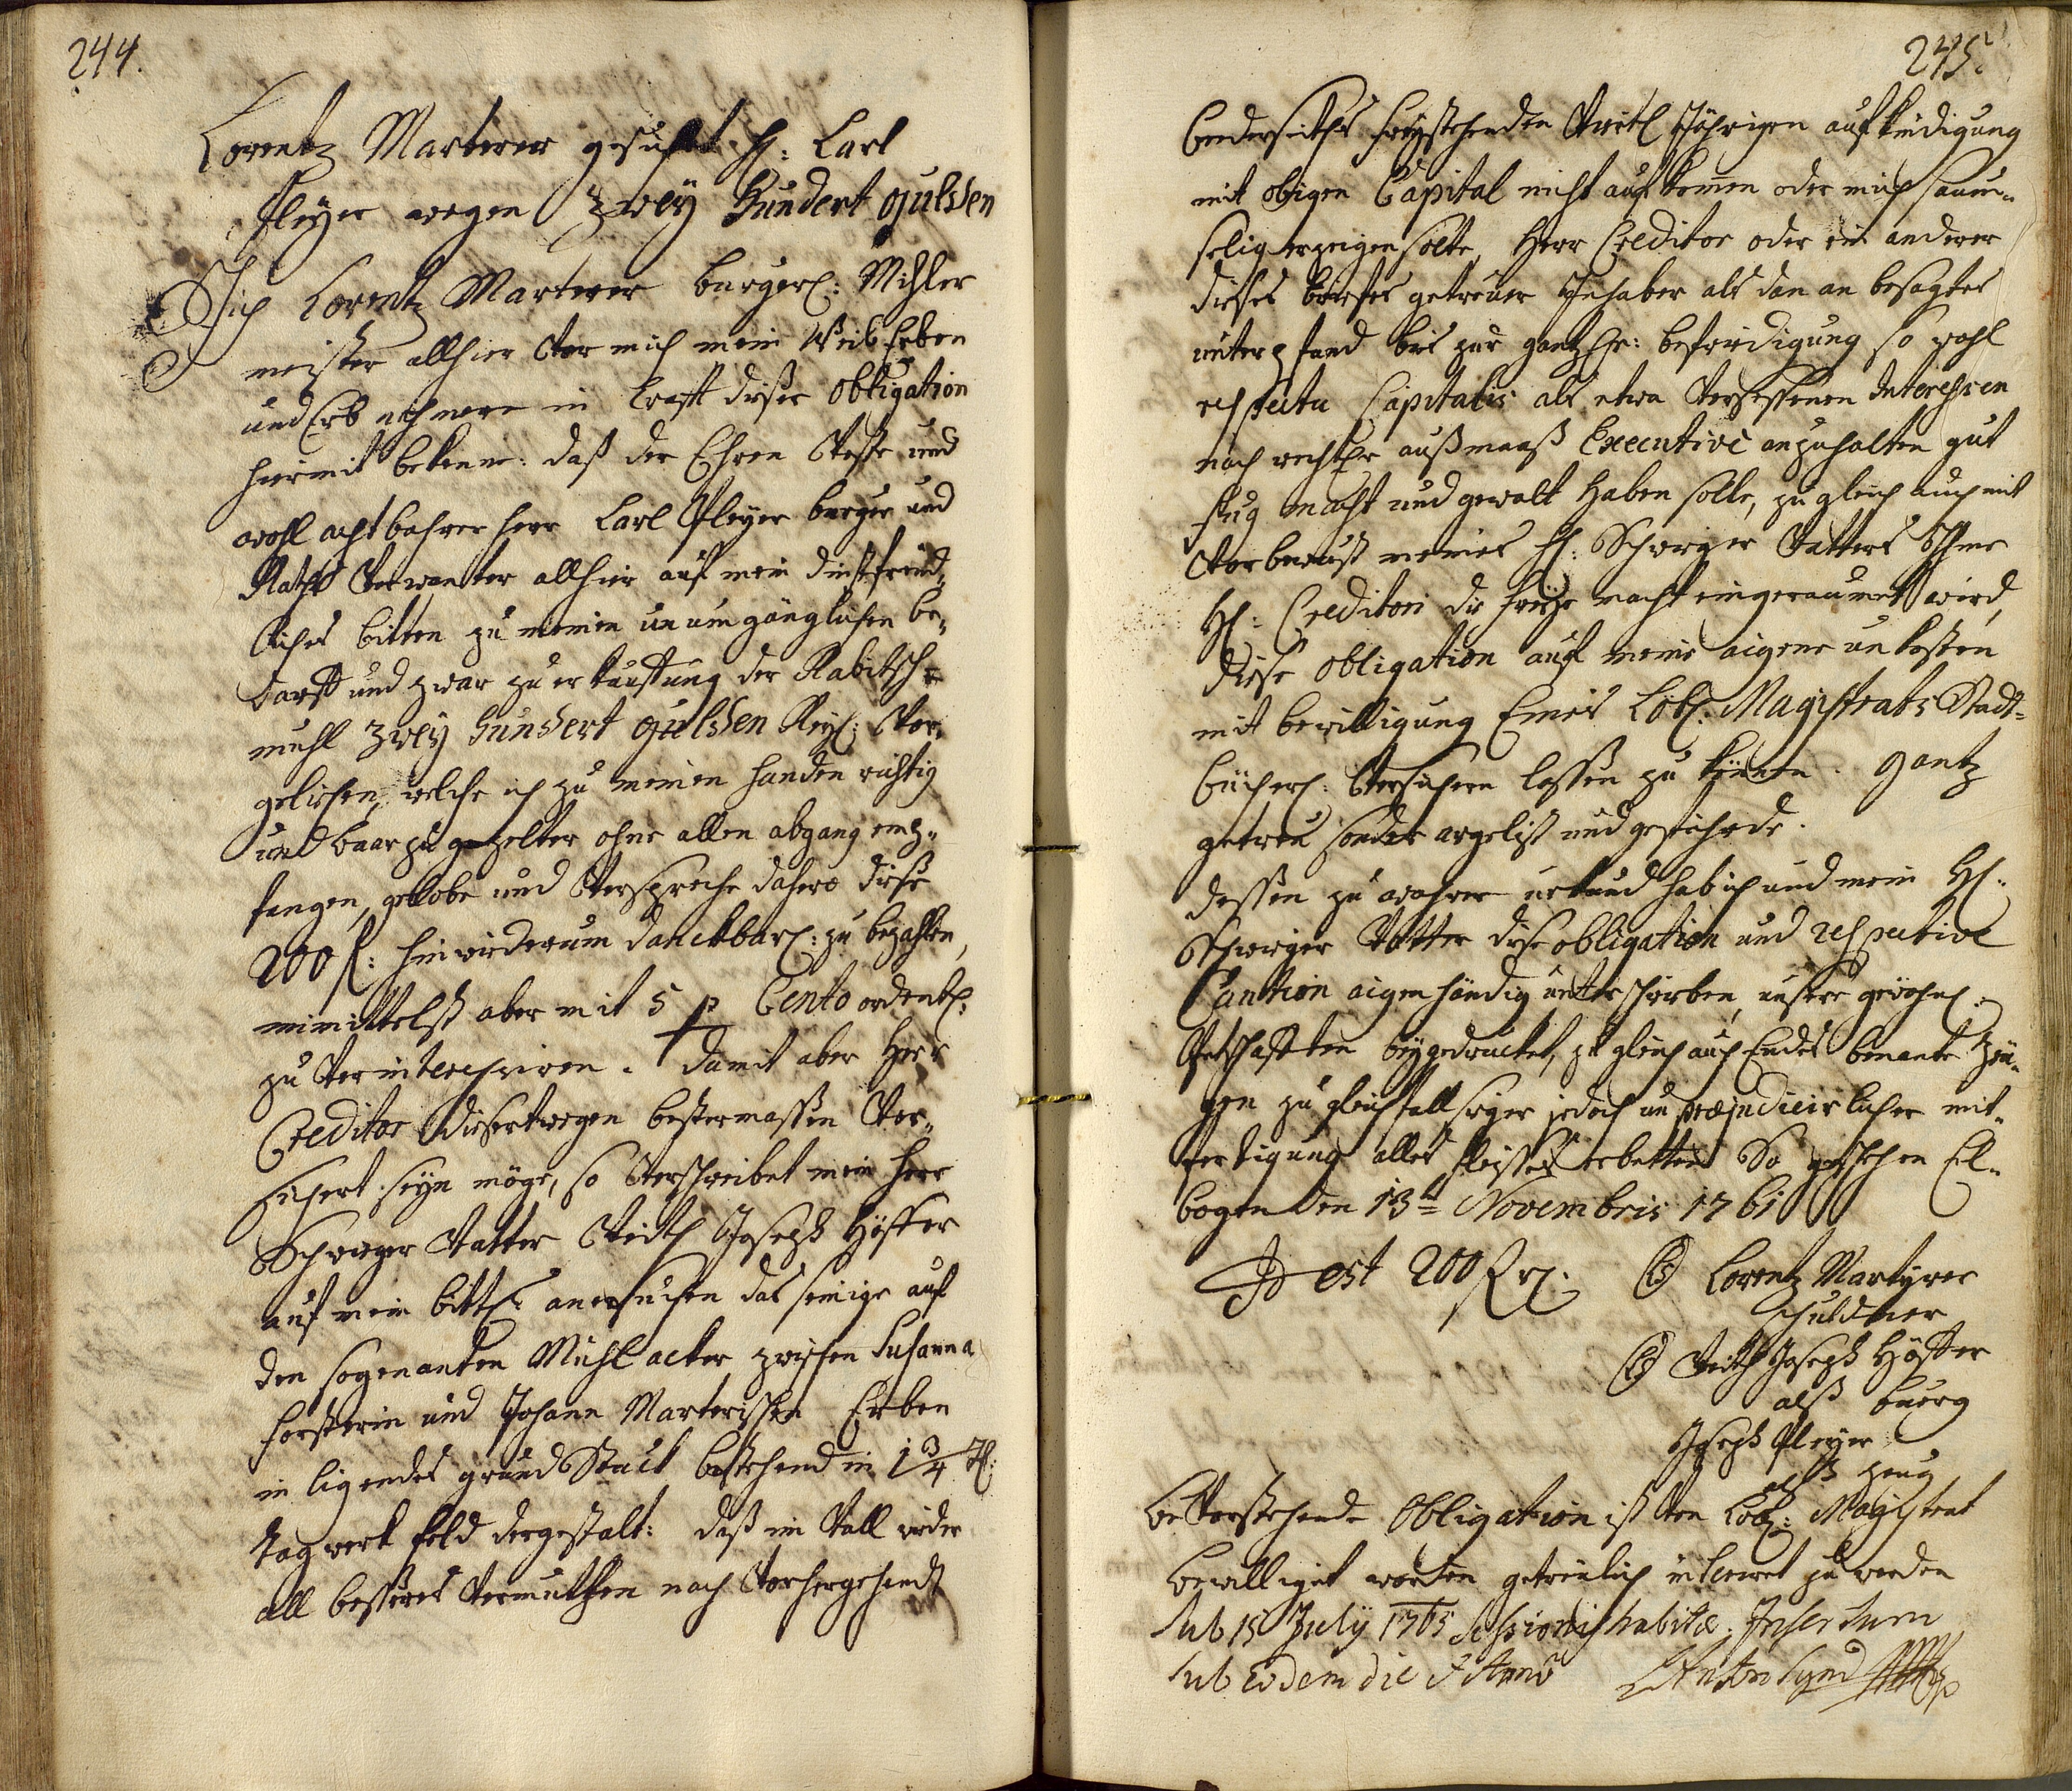 244.
Lorentz Marterer gesuchet H: Carl
Pleyer wegen Zwey Hundert gulden
Ich Lorentz Marterer burgerl: Mihler
meister allhier vor mich mein Weib Erben
und Erb nehmere in krafft dießer Obligation
hiermit bekenne: daß der Ehren Veste und
wohl achtbahrer Herr Carl Pleyer burger und
Raths Verwanter allhier auf mein dinstfreind„
liches bitten zu meinen unumgänglichen be„
darff und zwar zu erkauffung der Rabitsch
muhl Zwey Hundert gulden Rh: Vor„
geliehen, welche ich zu meinen handen richtig
und baar zu gezelter ohne allen abgang emp„
fangen, gelobe und Verspreche dahero dieße
200 f: hinwiederumb danckbarl: zu bezahlen,
immittelst aber mit 5 p Cento ordentl:
zu Verinteressiren. damit aber Herr
Creditor dießertwegen bestermassen Ver„
sichert seyn möge, so Verschreibet mein Herr
Schwieger Vatter Veith Joseph Höffer
auf mein bittl: anersuchen das seinige auf
den sogenanten Mühl acker zwischen Susanna
Forsterin und Johann Marterischen Erben
in ligendes grund Stuck bestehend in 1 3/4 tl:
tagwerk feld dergestalt: daß im Vall wider
all besseres Vermuthen nach Vorhergehends
245.
beederseiths freystehenden Viertl Jährigen aufkündigung
mit obigen Capital nicht aufkomen oder mich saum„
selig erzeigen solte, Herr Creditor oder ein anderer
dießes briefes getreuer Inhaber als dan an besagtes
unterpfand bis zur gantzl: befridigung so wohl
respectu Capitalis als etwa Versessenen Interessen
nach rechtl: außmaaß Executive anzuhalten gut
fug macht und gewalt haben solle, zu gleich auch mit
Vorbewust meines H: Schwiger Vatters Ihme
H: Creditori die freye macht eingeraumet wird,
diese Obligation auf meine aigene unkosten
mit bewilligung Eines Löbl: Magistrats Stadt„
bücherl: Versichern lassen zu können. Gantz
getreu sonder argelist und gefährde.
dessen zu wahrer urkund hab ich und mein H:
Schwieger Vatter diese obligation und respective
Caution aigenhändig unterschriben, unsere gewöhnl:
Petschafften beygedrucket, zu gleich auch Endes benante Zeu„
gen zu gleichfallsiger jedoch unpræjudicirlicher mit„
fertigung alles fleisses erbetten So geschehen El„
bogen den 13t Novembris 1761
Id est 200 f
Lorentz Martyrer
schuldner
Veith Joseph Höffer
alß buerg
Joseph Pleyer
alß zeug
Bevorstehende Obligation ist Von Löbl: Magistrat
bewilliget worden getreulich inserirt zu werden
sub 15 July 1765 Sessionis habitæ. Insertum
sub eodem die et Anno